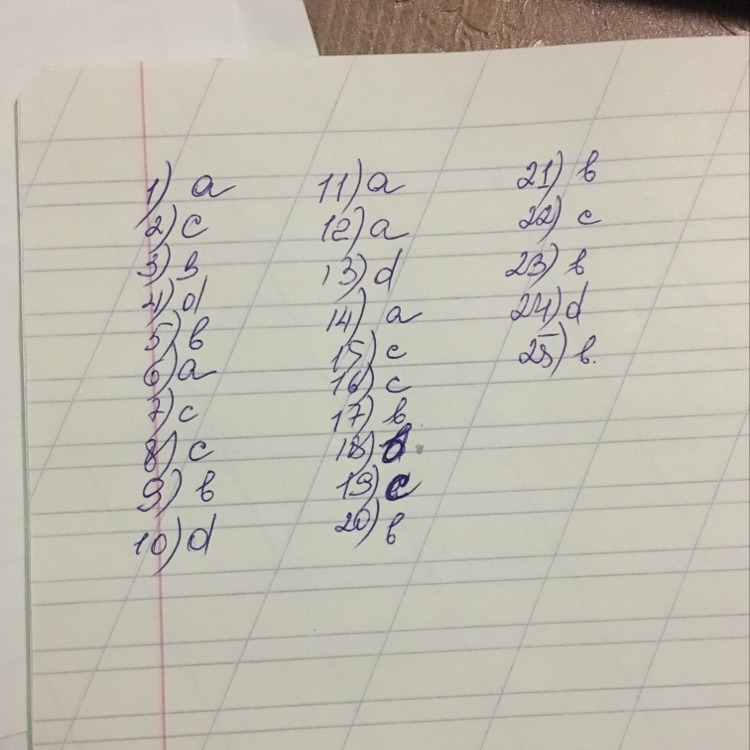 1) a
2) c
3) в
4) d
5) b
6) a
7) c
8) c
9) b
10) d
11) a
12) a
13) d
14) a
15) c
16) c
17) b
18)
19) c
20) b
21) b
22) c
23) b
24) d
25) b.